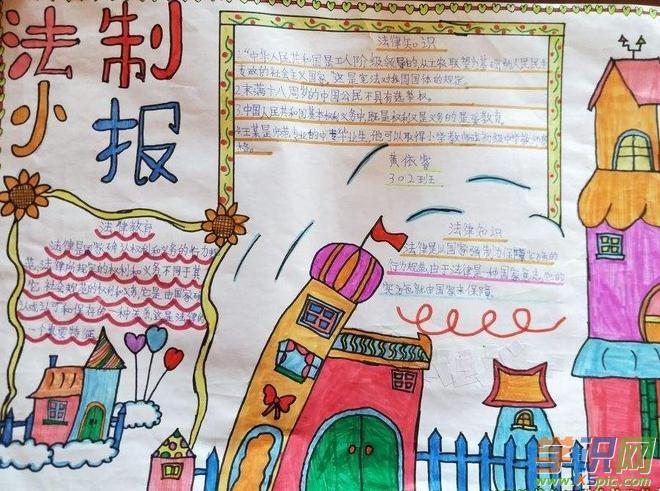 法制
小报
法律知识
1."中华人民共和国是工人阶级领导的,以工农联盟为基础的人民民主
专政的社会主义国家。"这是宪法对我国国体的规定。
2.未满十八周岁的中国公民不具有选举权。
3.中国人民共和国基本权利义务中,既是权利又是义务的是受教育。
4.王某是师范专业的中专毕业生,他可以取得小学教师或初级中学教师
格。
黄依睿
302班
法律教育
法律是国家确认权利和义务的行为规
范,法律所规定的权利和义务不同于其
它社会规范的权利和义务,它是由国家确
认或认可和保存的一种关系,这是法律的
一个重要特征。
法律知识
法律是以国家强制力保障实施的
行为规范,由于法律是一种国家意志,它的
实施就由国家来保障。
学识网
www.XSpic.com